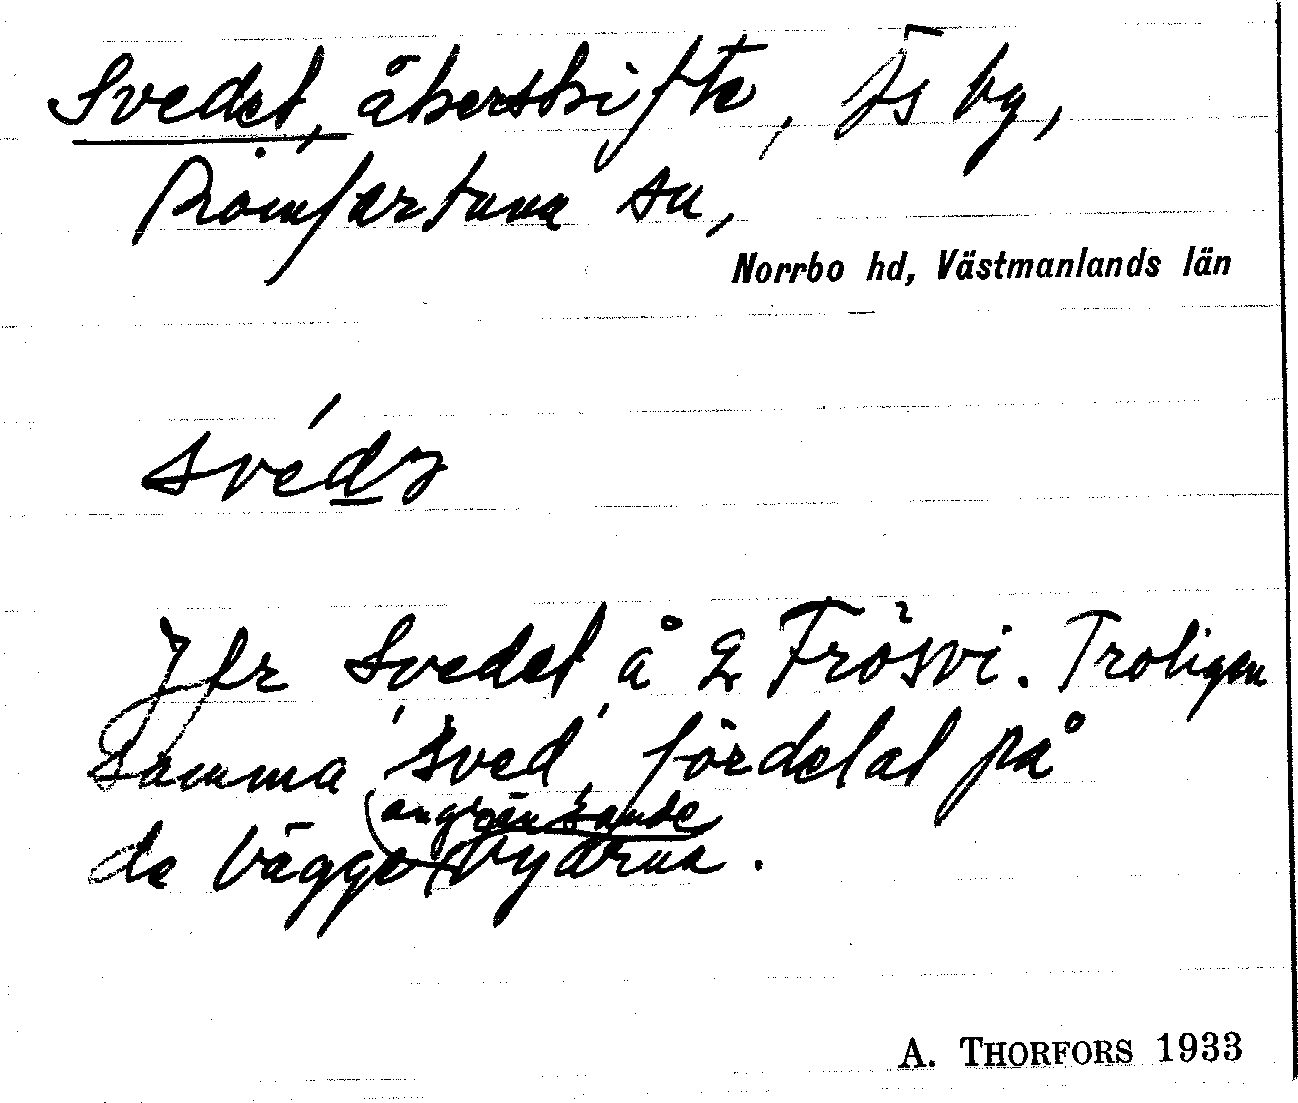 Svedet, åkerskifte, Js by,
Romfartuna sn,
Norrbo hd, Västmanlands län
svédз
Jfr Svedet å g Frösvi. Troligen
samma 'sved', fördelat på
angränsande
de bägge byarna.
A. THORFORS 1933